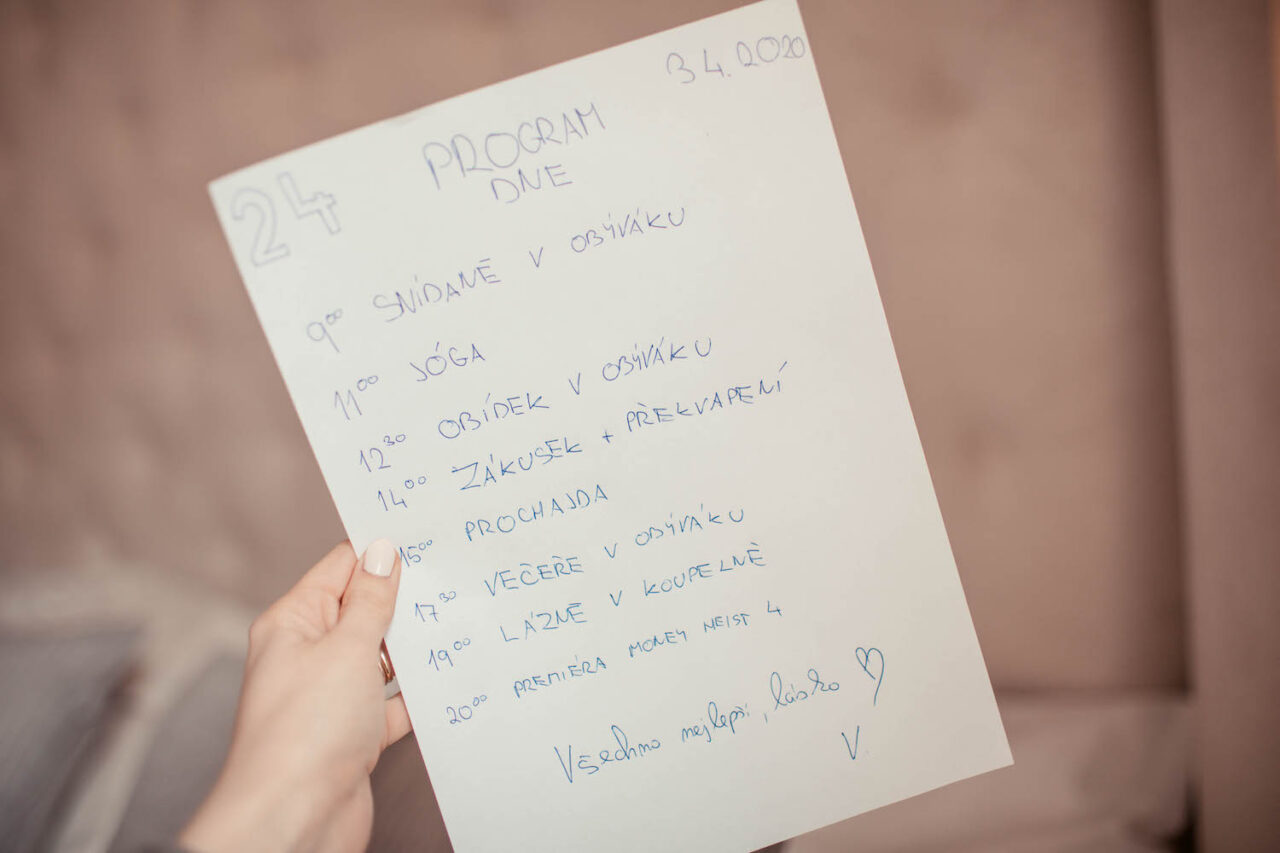 3 4. 2020
24
PROGRAM
DNE
9⁰⁰ SNÍDANĚ V OBÝVÁKU
11⁰⁰ JÓGA
12³⁰ OBÍDEK V OBÝVÁKU
14⁰⁰ ZÁKUSEK + PŘEKVAPENÍ
15⁰⁰ PROCHAJDA
17³⁰ VEČEŘE V OBÝVÁKU
19⁰⁰ LÁZNĚ V KOUPELNĚ
20⁰⁰ PREMIÉRA MONEY HEIST 4
Všechno nejlepší, lásko ♡
V.